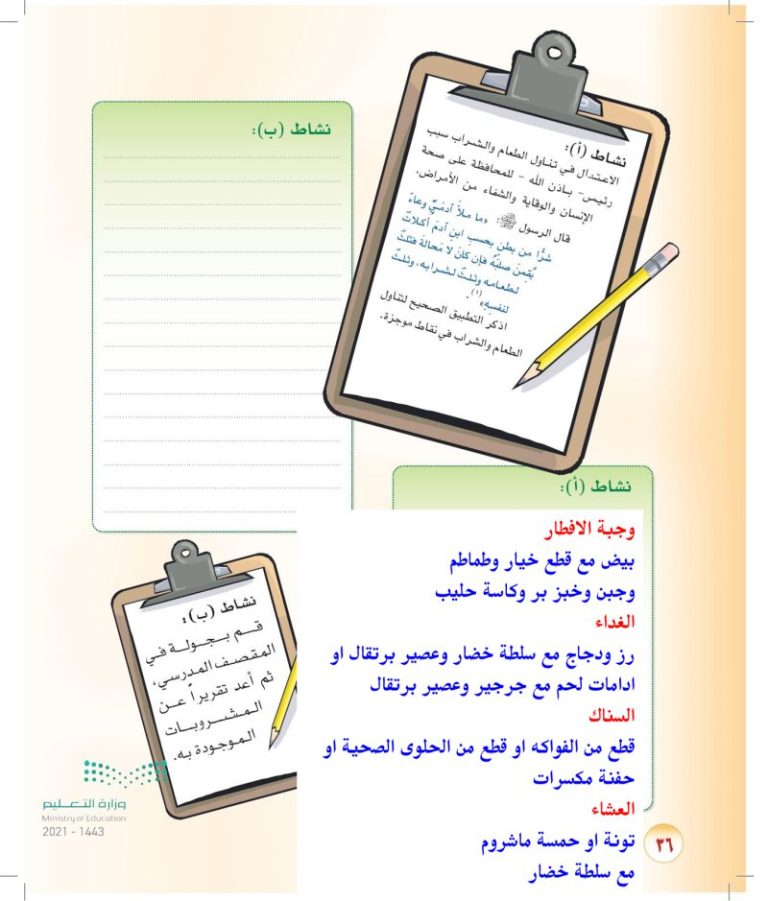 نشاط (أ):
الاعتدال في تناول الطعام والشراب سبب
رئيس- بإذن الله - للمحافظة على صحة
الإنسان والوقاية والشفاء من الأمراض.
قال الرسول ﷺ: «ما ملأ آدَمَيٌّ وعاءً
شرًّا من بطنٍ بحسبِ ابنِ آدمَ أكلاتٌ
يُقِمنَ صلبَهُ فإن كانَ لا مَحالةَ فثلثٌ
لطعامه وثلثٌ لشرابه، وثلثٌ
لنفسِهِ»(١).
اذكر التطبيق الصحيح لتناول
الطعام والشراب في نقاط موجزة.
نشاط (ب):
نشاط (أ):
وجبة الافطار
بيض مع قطع خيار وطماطم
وجبن وخبز بر وكاسة حليب
الغداء
رز ودجاج مع سلطة خضار وعصير برتقال او
ادامات لحم مع جرجير وعصير برتقال
السناك
قطع من الفواكه او قطع من الحلوى الصحية او
حفنة مكسرات
العشاء
تونة او حمسة ماشروم
مع سلطة خضار
نشاط (ب):
قم بجولة في
المقصف المدرسي،
ثم أعد تقريراً عن
المشروبات
الموجودة به.
وزارة التعليم
Ministry of Education
2021 - 1443
٣٦